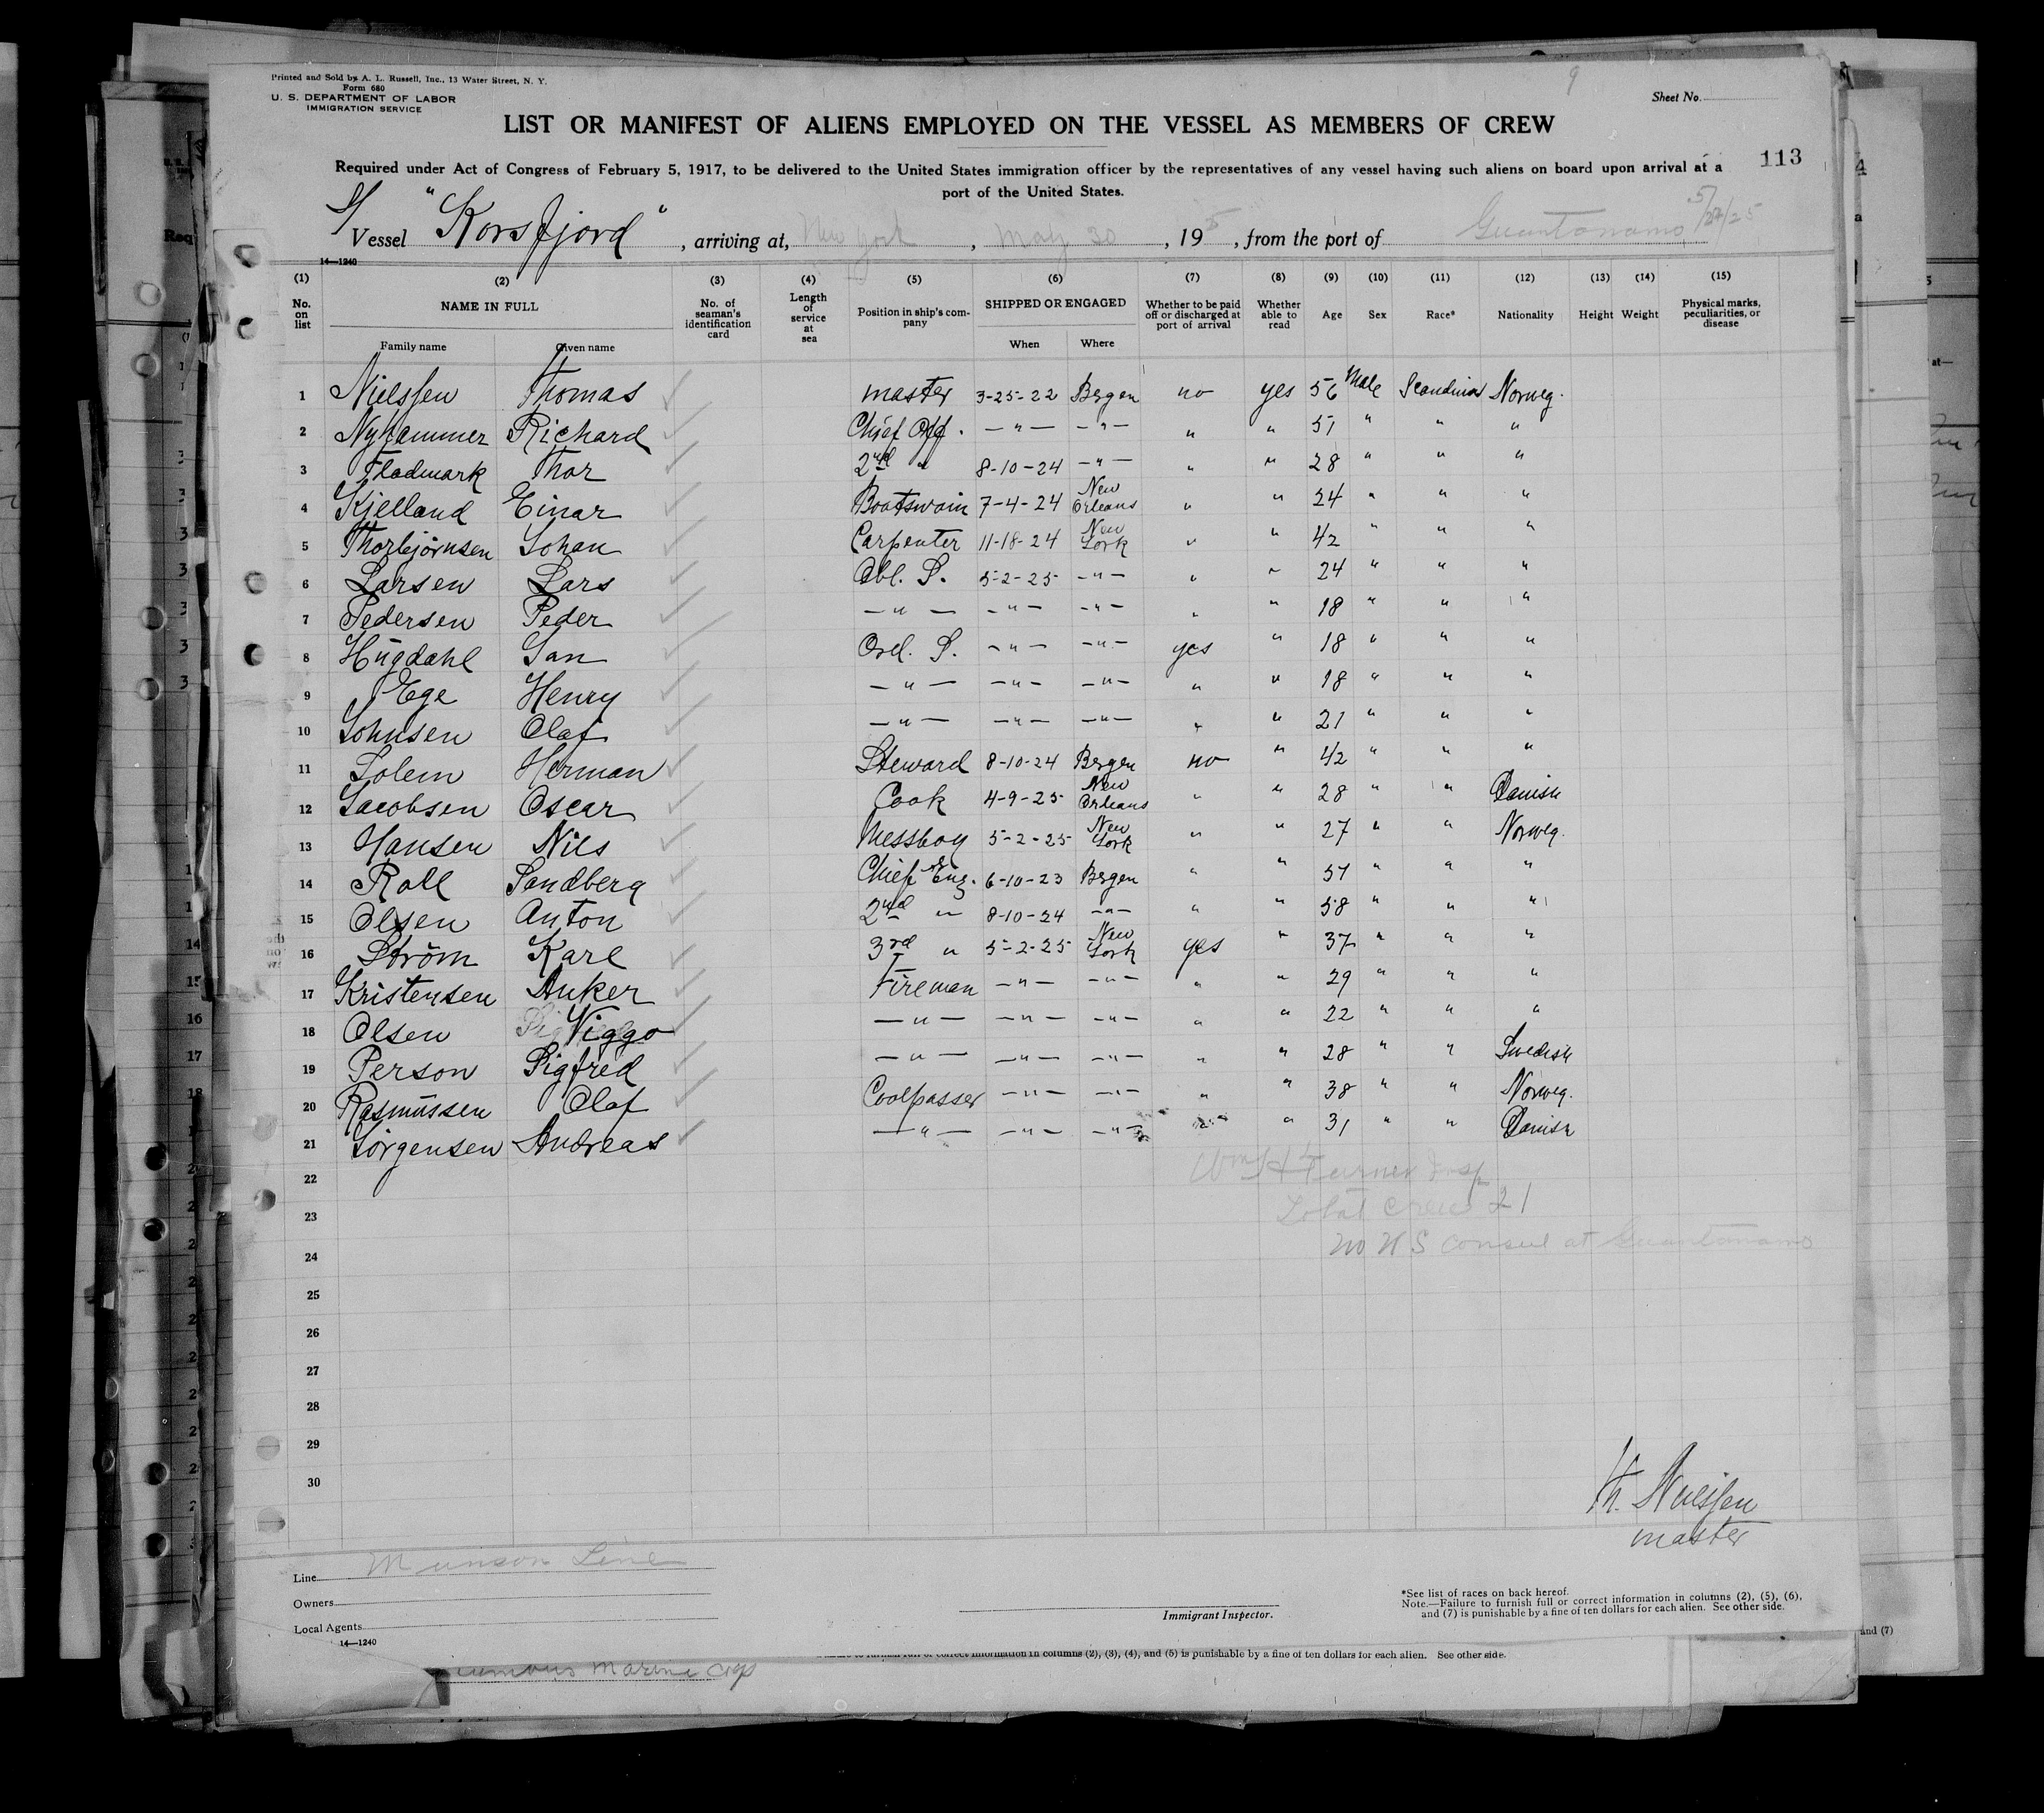 Printed and Sold by A. L. Russell, Inc., 13 Water Street, N. Y.
Form 680
U. S. DEPARTMENT OF LABOR
IMMIGRATION SERVICE
9
Sheet No.
LIST OR MANIFEST OF ALIENS EMPLOYED ON THE VESSEL AS MEMBERS OF CREW
113
Required under Act of Congress of February 5, 1917, to be delivered to the United States immigration officer by the representatives of any vessel having such aliens on board upon arrival at a
port of the United States.
S/ Vessel "Korsfjord", arriving at, New York, May 30, 195, from the port of Guantanamo 5/24/25
14—1240
(1) (2) (3) (4) (5) (6) (7) (8) (9) (10) (11) (12) (13) (14) (15)
No. on list NAME IN FULL No. of seaman's identification card Length of service at sea Position in ship's company SHIPPED OR ENGAGED Whether to be paid off or discharged at port of arrival Whether able to read Age Sex Race* Nationality Height Weight Physical marks, peculiarities, or disease
Family name Given name When Where
1 Nielssen Thomas ✓ master 3-25-22 Bergen no yes 56 Male Scandinav Norweg.
2 Nyhammer Richard ✓ Chief Off. —"— —"— " " 51 " " "
3 Fladmark Thor ✓ 2nd " 8-10-24 —"— " " 28 " " "
4 Kjelland Einar ✓ Boatswain 7-4-24 New Orleans " " 24 " " "
5 Thorbjørnsen Johan ✓ Carpenter 11-18-24 New York " " 42 " " "
6 Larsen Lars ✓ Abl. S. 5-2-25 —"— " " 24 " " "
7 Pedersen Peder ✓ —"— —"— —"— " " 18 " " "
8 Hugdahl Jan ✓ Ord. S. —"— —"— yes " 18 " " "
9 Ege Henry ✓ —"— —"— —"— " " 18 " " "
10 Johnsen Olaf ✓ —"— —"— —"— " " 21 " " "
11 Solem Herman ✓ Steward 8-10-24 Bergen no " 42 " " "
12 Jacobsen Oscar ✓ Cook 4-9-25 New Orleans " " 28 " " Danish
13 Hansen Nils ✓ Messboy 5-2-25 New York " " 27 " " Norweg.
14 Roll Sandberg ✓ Chief Eng. 6-10-23 Bergen " " 57 " " "
15 Olsen Anton ✓ 2nd " 8-10-24 —"— " " 58 " " "
16 Strøm Karl ✓ 3rd " 5-2-25 New York yes " 37 " " "
17 Kristensen Anker ✓ Fireman —"— —"— " " 29 " " "
18 Olsen Viggo ✓ —"— —"— —"— " " 22 " " "
19 Person Sigfred ✓ —"— —"— —"— " " 28 " " Swedish
20 Rasmussen Olaf ✓ Coolpasser —"— —"— " " 38 " " Norweg.
21 Jörgensen Andreas ✓ —"— —"— —"— " " 31 " " Danish
22 Wm H Turner Insp
23 Total Crew 21
24 no U S Consul at Guantanamo
25
26
27
28
29
30
Th. Nielssen
master
Line Munson Line
Owners
Local Agents
14—1240
Immigrant Inspector.
*See list of races on back hereof.
Note.—Failure to furnish full or correct information in columns (2), (5), (6),
and (7) is punishable by a fine of ten dollars for each alien. See other side.
and (7)
correct information in columns (2), (3), (4), and (5) is punishable by a fine of ten dollars for each alien. See other side.